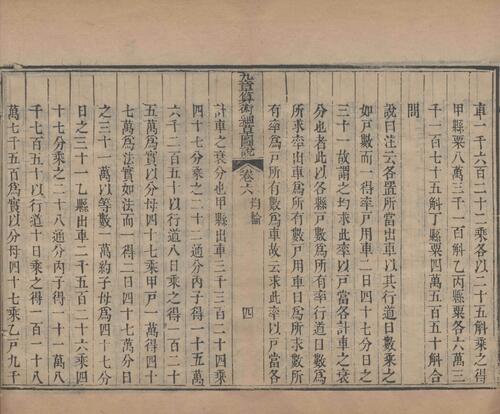 車一千六百二十二乘各以二十五斛乘之得
甲縣粟八萬三千一百斛乙丙縣粟各六萬三
千一百七十五斛丁縣粟四萬五百五十斛合
問
說曰注云各置所當出車以其行道日數乘之
如戸數而一得率戸用車二日四十七分日之
三十一故謂之均求此率以戸當各計車之衰
分也者此以各縣戸數爲所有率行道日數爲
所求率出車爲所有數戸用車日爲所求數所
有率爲戸所有數爲車故云求此率以戸當各
九章算術細草圖說 卷六 均輸 四
計車之衰分也甲縣出車三千三百二十四乘
四十七分乘之二十二通分內子得一十五萬
六千二百五十以行道八日乘之得一百二十
五萬爲實以分母四十七乘甲戸一萬得四十
七萬爲法實如法而一得二日四十七萬分日
之三十一萬以等數一萬約子母爲四十七分
日之三十一乙縣出車二千五百二十六乘四
十七分乘之二十八通分內子得一十一萬八
千七百五十以行道十日乘之得一百一十八
萬七千五百爲實以分母四十七乘乙戸九千